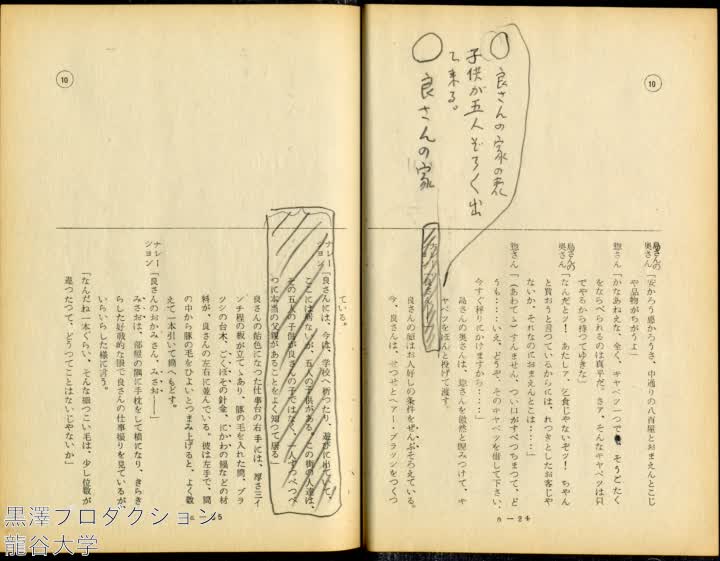 10
○良さんの家の表
子供が五人ぞろぞろ出
て来る。
○良さんの家
島さんの
奥さん
「安かろう悪かろうさ、中通りの八百屋とおまえんとこじ
や品物がちがうよ」
惣さん「かなあねえな、全く、キャベツ一つで そうどたく
をならべられるのは真平だ。さァ、そんなキャベツは只
でやるから持つてゆきな」
島さんの
奥さん
「なんだとツ! あたしァ、乞食じゃないぞツ! ちやん
と買おうと言つているからには、れつきとしたお客じゃ
ないか、それなのにおまえんとこは……」
惣さん「(あわてゝ)すんません、つい口がすべつちまつて、ど
うも……いえ、どうぞ、そのキャベツを借して下さい、
今すぐ秤りにかけますから……」
島さんの奥さんは、惣さんを傲然と睨みつけて、キ
ャベツをぽんと投げて渡す。
ナレー
ション
良さんの顔はお人好しの条件をぜんぶそろえている。
今、良さんは、せつせとヘアー・ブラッシをつくつ
n—24
10
ている。
ナレー
ション
「良さんには、今は、学校へ行つたり、遊びに出ていて、
ここには居ないが、五人の子供がある。この街の人達は、
その五人の子供が良さんの子ではなく、一人ずつべつべ
つに本当の父親があることをよく知つて居る」
良さんの飴色になつた仕事台の右手には、厚さ三イ
ンチ程の板が立てゝあり、豚の毛を入れた筒、ブラ
ツシの台木、ごくぼその針金、にかわの鍋などの材
料が、良さんの左右に並んでいる。彼は左手で、筒
の中から豚の毛をひよいとつまみ上げると、よく数
えて一本引いて筒へもどす。
ナレー
ション
「良さんのおかみさん、みさお——」
みさおは、部屋の隅に手枕をして横になり、きらき
らした好戦的な眼で良さんの仕事振りを見ているが、
いらいらした様に言う。
「なんだね一本ぐらい、そんな細つこい毛は、少し位数が
違つたつて、どうつてことはないじやないか」
黒澤プロダクション
龍谷大学